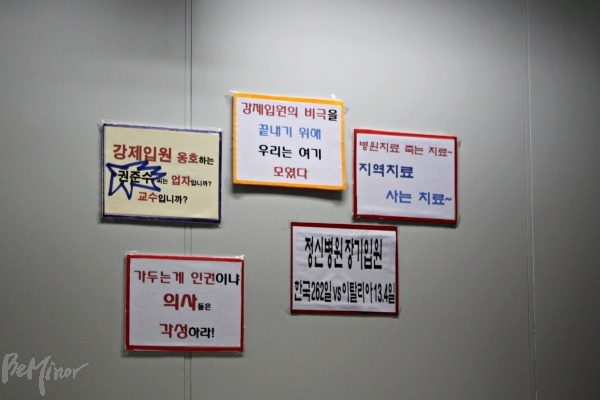 강제입원 옹호하는
권준수 씨는 업자입니까?
교수입니까?
강제입원의 비극을
끝내기 위해
우리는 여기
모였다
병원치료 죽는 치료~
지역치료
사는 치료~
가두는게 인권이냐
의사들은
각성하라!
정신병원 장기입원
한국262일vs이탈리아13.4일
BeMinor